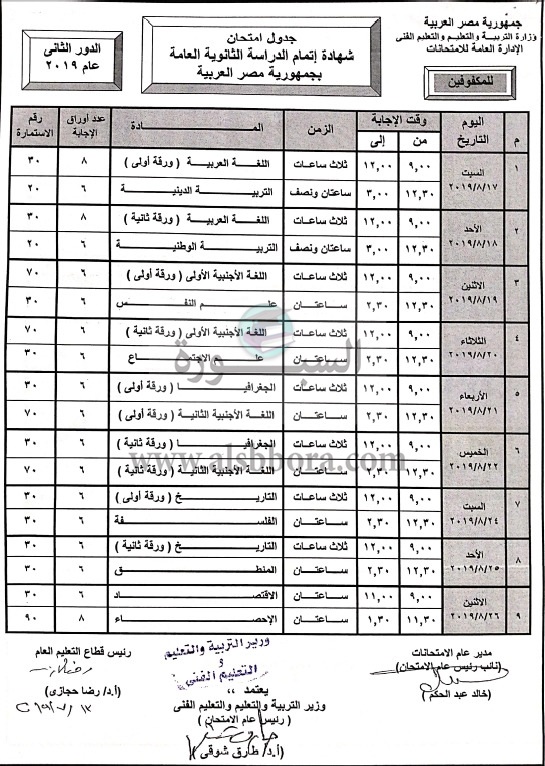 جمهورية مصر العربية
وزارة التربية والتعليم والتعليم الفنى
الإدارة العامة للامتحانات
للمكفوفين
جدول امتحان
شهادة إتمام الدراسة الثانوية العامة
بجمهورية مصر العربية
الدور الثانى
عام ٢٠١٩
م اليوم التاريخ وقت الإجابة من إلى الزمن المادة عدد أوراق الإجابة رقم الاستمارة
١ السبت ٢٠١٩/٨/١٧ ٩,٠٠ ١٢,٠٠ ثلاث ساعات اللغة العربية ( ورقة أولى ) ٨ ٣٠
١٢,٣٠ ٣,٠٠ ساعتان ونصف التربية الدينية ٦ ٢٠
٢ الأحد ٢٠١٩/٨/١٨ ٩,٠٠ ١٢,٠٠ ثلاث ساعات اللغة العربية ( ورقة ثانية ) ٨ ٣٠
١٢,٣٠ ٣,٠٠ ساعتان ونصف التربية الوطنية ٦ ٢٠
٣ الاثنين ٢٠١٩/٨/١٩ ٩,٠٠ ١٢,٠٠ ثلاث ساعات اللغة الأجنبية الأولى ( ورقة أولى ) ٦ ٧٠
١٢,٣٠ ٢,٣٠ ساعتان علم النفس ٦ ٣٠
٤ الثلاثاء ٢٠١٩/٨/٢٠ ٩,٠٠ ١٢,٠٠ ثلاث ساعات اللغة الأجنبية الأولى ( ورقة ثانية ) ٦ ٧٠
١٢,٣٠ ٢,٣٠ ساعتان علم الاجتماع ٦ ٣٠
٥ الأربعاء ٢٠١٩/٨/٢١ ٩,٠٠ ١٢,٠٠ ثلاث ساعات الجغرافيا ( ورقة أولى ) ٦ ٣٠
١٢,٣٠ ٢,٣٠ ساعتان اللغة الأجنبية الثانية ( ورقة أولى ) ٦ ٧٠
٦ الخميس ٢٠١٩/٨/٢٢ ٩,٠٠ ١٢,٠٠ ثلاث ساعات الجغرافيا ( ورقة ثانية ) ٦ ٣٠
١٢,٣٠ ٢,٣٠ ساعتان اللغة الأجنبية الثانية ( ورقة ثانية ) ٦ ٧٠
٧ السبت ٢٠١٩/٨/٢٤ ٩,٠٠ ١٢,٠٠ ثلاث ساعات التاريخ ( ورقة أولى ) ٦ ٣٠
١٢,٣٠ ٢,٣٠ ساعتان الفلسفة ٦ ٣٠
٨ الأحد ٢٠١٩/٨/٢٥ ٩,٠٠ ١٢,٠٠ ثلاث ساعات التاريخ ( ورقة ثانية ) ٦ ٣٠
١٢,٣٠ ٢,٣٠ ساعتان المنطق ٦ ٣٠
٩ الاثنين ٢٠١٩/٨/٢٦ ٩,٠٠ ١١,٠٠ ساعتان الاقتصاد ٦ ٣٠
١١,٣٠ ١,٣٠ ساعتان الإحصاء ٨ ٩٠
السبورة
www.alsbbora.com
مدير عام الامتحانات
( نائب رئيس عام الامتحان )
(خالد عبد الحكم )
وزير التربية والتعليم
و
التعليم الفنى
يعتمد ،،
وزير التربية والتعليم والتعليم الفنى
( رئيس عام الامتحان )
(أ.د/ طارق شوقى )
رئيس قطاع التعليم العام
(أ.د/ رضا حجازى )